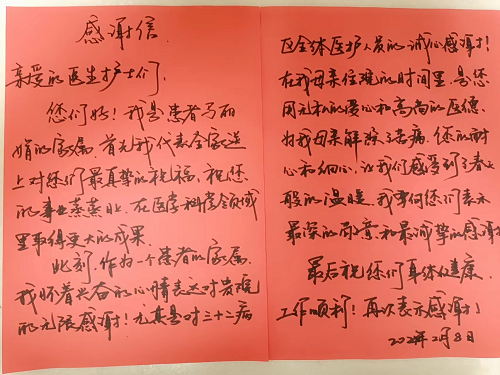 感谢信
亲爱的医生护士们,
您们好!我是患者马丽
娟的家属,首先我代表全家送
上对您们最真挚的祝福,祝您
的事业蒸蒸日上,在医学科学领域
里取得更大的成果。
此刻,作为一个患者的家属,
我怀着兴奋的心情表达对贵院
的无限感谢!尤其是对三十二病
区全体医护人员的诚心感谢!
在我母亲住院的时间里,是您
用无私的爱心和高尚的医德,
为我母亲解除了病痛,您的耐
心和细心,让我们感受到了春天
般的温暖,我要向您们表示
最深的敬意和最诚挚的感谢!
最后祝您们身体健康,
工作顺利!再次表示感谢!
2022年2月8日